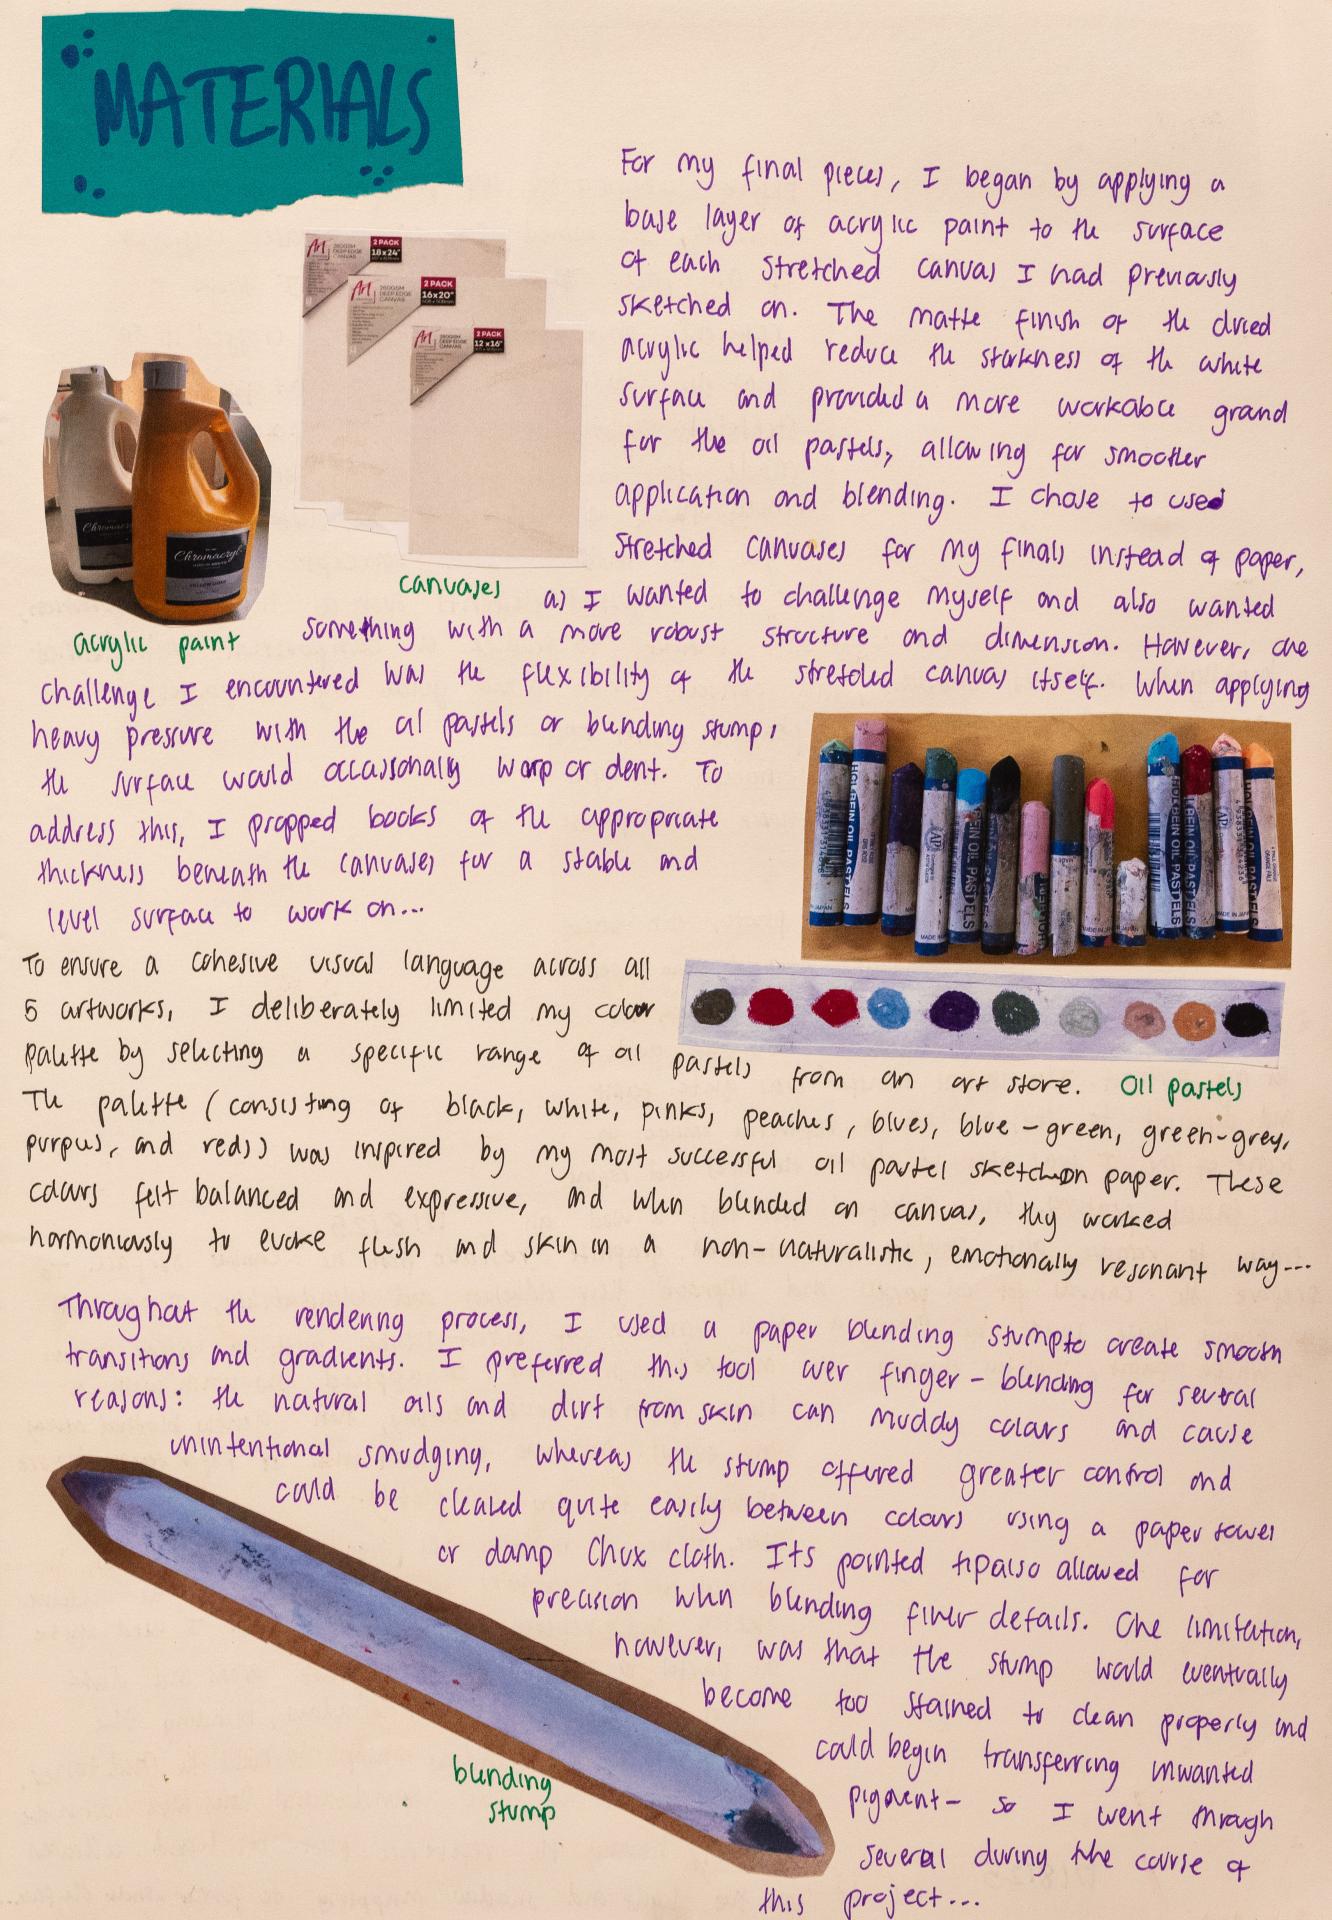 MATERIALS
For my final pieces, I began by applying a
base layer of acrylic paint to the surface
of each stretched canvas I had previously
sketched on. The matte finish of the dried
acrylic helped reduce the starkness of the white
surface and provided a more workable grand
for the oil pastels, allowing for smoother
application and blending. I chose to used
stretched canvases for my finals instead of paper,
as I wanted to challenge myself and also wanted
something with a more robust structure and dimension. However, one
challenge I encountered was the flexibility of the stretched canvas itself. When applying
heavy pressure with the oil pastels or blending stump,
the surface would occassonally warp or dent. To
address this, I propped books of the appropriate
thickness beneath the canvases for a stable and
level surface to work on...
2 PACK
18x24"
280GSM
DEEP EDGE
CANVAS
2 PACK
16x20"
280GSM
DEEP EDGE
CANVAS
2 PACK
12x16"
280GSM
DEEP EDGE
CANVAS
canvases
Chromacryl
Chromacryl
acrylic paint
HOLBEIN OIL PASTELS
OIL PASTELS
HOLBEIN OIL PASTELS
HOLBEIN OIL PASTELS
MADE IN JAPAN
To ensure a cohesive visual language across all
5 artworks, I deliberately limited my colour
palette by selecting a specific range of oil pastels from an art store.
Oil pastels
The palette (consisting of black, white, pinks, peaches, blues, blue-green, green-grey,
purples, and reds) was inspired by my most successful oil pastel sketch on paper. These
colours felt balanced and expressive, and when blended on canvas, they worked
harmoniously to evoke flesh and skin in a non-naturalistic, emotionally resonant way...
Throughout the rendering process, I used a paper blending stump to create smooth
transitions and gradients. I preferred this tool over finger-blending for several
reasons: the natural oils and dirt from skin can muddy colours and cause
unintentional smudging, whereas the stump offered greater control and
could be cleaned quite easily between colours using a paper towel
or damp Chux cloth. Its pointed tip also allowed for
precision when blending finer details. One limitation,
however, was that the stump would eventually
become too stained to clean properly and
could begin transferring unwanted
pigment- so I went through
several during the course of
this project...
blending
stump